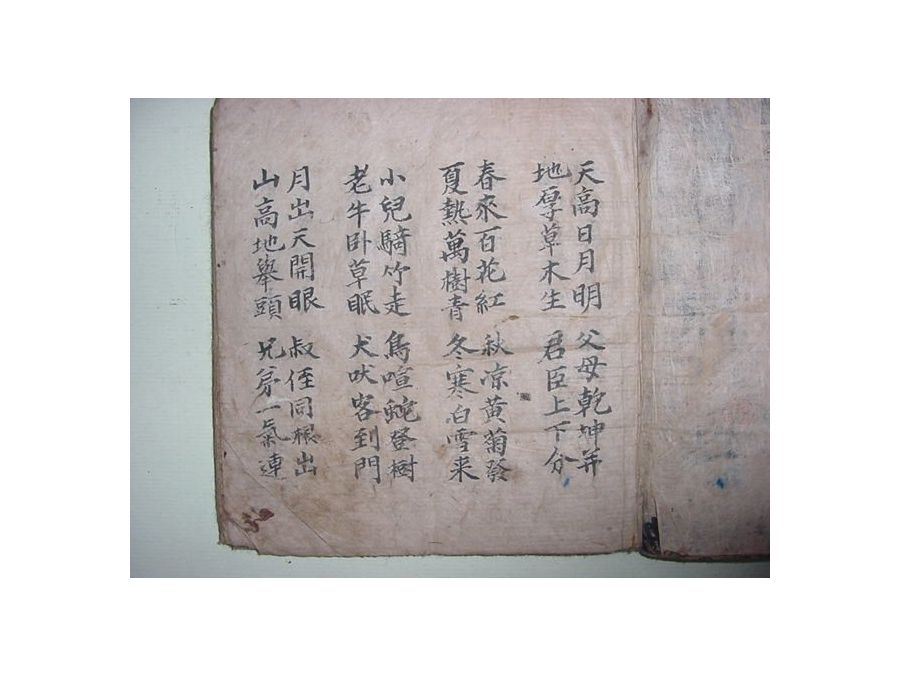 天高日月明 父母乾坤並
地厚草木生 君臣上下分
春來百花紅 秋凉黄菊發
夏熱萬樹青 冬寒白雪来
小兒騎竹走 鳥喧蛇登樹
老牛卧草眠 犬吠客到門
月出天開眼 叔侄同根出
山高地舉頭 兄弟一氣連